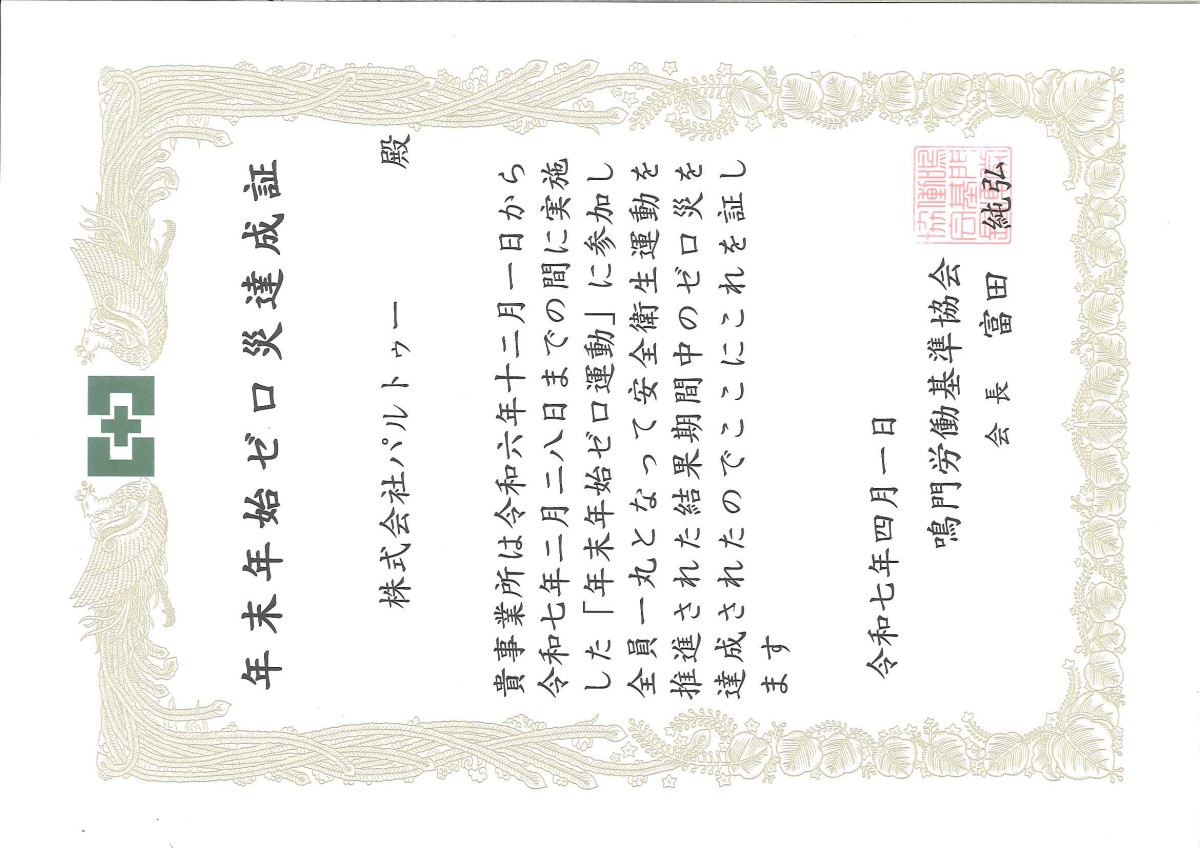 年末年始ゼロ災達成証
株式会社パルトゥー 殿
貴事業所は令和六年十二月一日から
令和七年二月二八日までの間に実施
した「年末年始ゼロ運動」に参加し
全員一丸となって安全衛生運動を
推進された結果期間中のゼロ災を
達成されたのでここにこれを証し
ます
令和七年四月一日
鳴門労働基準協会
会長 富田 純弘